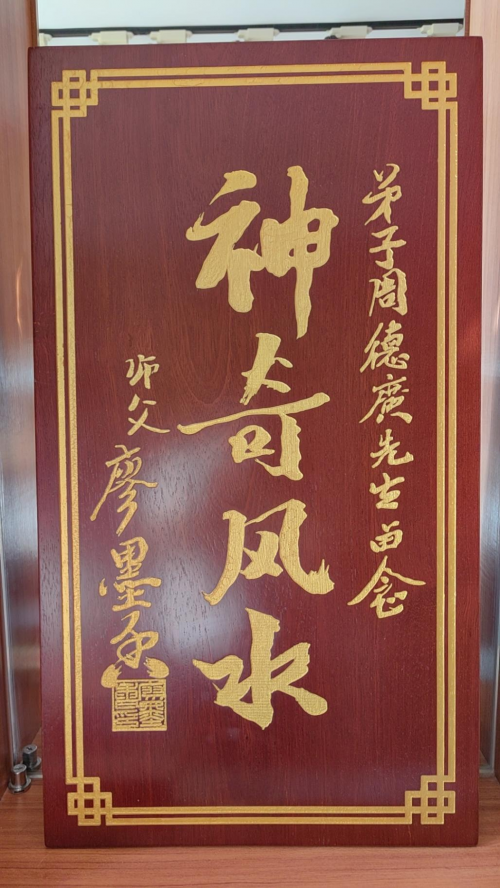 弟子周德廣先生留念
神奇风水
师父廖墨香